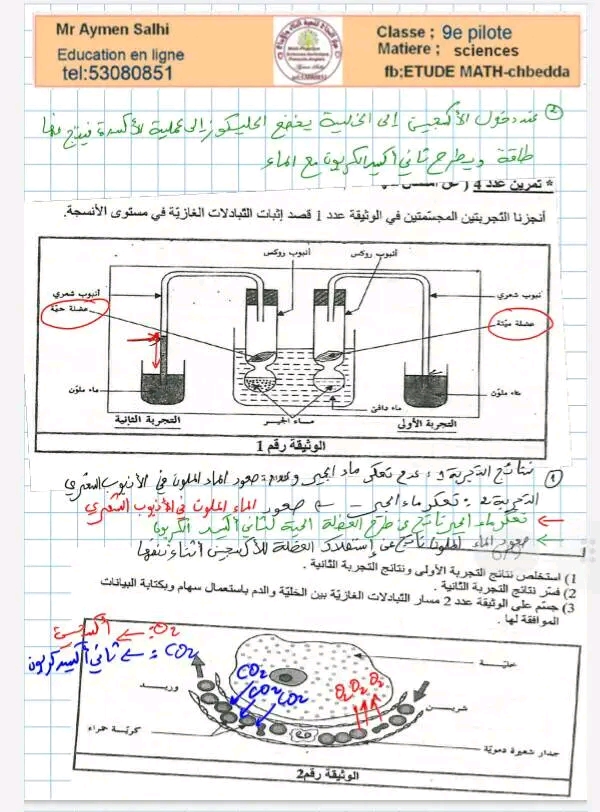 Mr Aymen Salhi
Education en ligne
tel:53080851
Classe ; 9e pilote
Matiere ; sciences
fb;ETUDE MATH-chbedda
② عند دخول الأكسجين إلى الخلية يخضع الجليكوز إلى عملية الأكسدة فينتج عنها
طاقة ويطرح ثاني أكسيد الكربون مع الماء
* تمرين عدد 4
أنجزنا التجربتين المجسّمتين في الوثيقة عدد 1 قصد إثبات التّبادلات الغازيّة في مستوى الأنسجة.
أنبوب روكس
أنبوب روكس
أنبوب شعري
أنبوب شعري
عضلة حيّة
عضلة ميّتة
ماء ملوّن
ماء ملوّن
ماء دافئ
مـاء الجيـر
التجربة الثانية
التجربة الأولى
الوثيقة رقم 1
① نتائج التجربة 1: عدم تعكر ماء الجير وعدم صعود الماء الملون في الأنبوب الشعري
التجربة 2: تعكر ماء الجير – صعود الماء الملون في الأنبوب الشعري
← تعكر ماء الجير ناتج عن طرح العضلة الحية لثاني أكسيد الكربون
← صعود الماء الملون ناتج عن إستهلاك العضلة للأكسجين أثناء تنفسها
1) استخلص نتائج التجربة الأولى ونتائج التجربة الثانية .
2) فسّر نتائج التجربة الثانية .
3) جسّم على الوثيقة عدد 2 مسار التّبادلات الغازيّة بين الخليّة والدم باستعمال سهام وبكتابة البيانات
الموافقة لها .
O₂ : ← أكسجين
CO₂ : ← ثاني أكسيد كربون
CO₂
CO₂
CO₂
O₂ O₂ O₂
خليّـة
وريـد
شريـن
كريّـة حمراء
جدار شعيرة دمويّة
الوثيقة رقم2